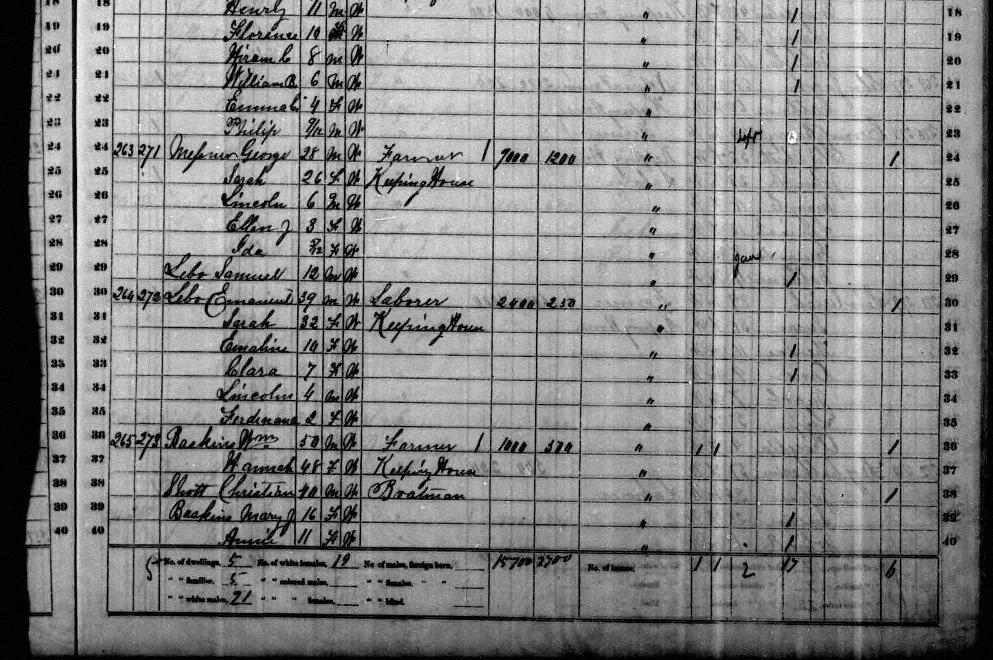 18 Henry 11 m W " 1 18
19 19 Florence 10 W " 1 19
20 20 Hiram C 8 m W " 1 20
21 21 William B 6 m W " 1 21
22 22 Emma 4 f W " 22
23 23 Philip 9/12 m W " Sept 23
24 24 263 271 Messner George 28 m W Farmer 1 9000 1200 " 1 24
25 25 Sarah 26 f W Keeping House " 25
26 26 Lincoln 6 m W " 26
27 27 Ellen J 3 f W " 27
28 28 Ida /12 f W " Jan 28
29 29 Lebo Samuel 12 m W " 1 29
30 30 264 272 Lebo Emanuel 39 m W Laborer 2400 250 " 1 30
31 31 Sarah 32 f W Keeping House " 31
32 32 Emaline 10 f W " 1 32
33 33 Clara 7 f W " 1 33
34 34 Lincoln 4 m W " 34
35 35 Ferdinand 2 f W " 35
36 36 265 273 Baskins Wm 50 m W Farmer 1 1000 500 " 1 1 1 36
37 37 Hannah 48 f W Keeping House " 37
38 38 Christian 40 m W Boatman " 1 38
39 39 Baskins Mary J 16 f W " 1 39
40 40 Annie 11 f W " 1 40
No. of dwellings, 5 No. of white females, 19 No. of males, foreign born, 15700 No. of insane, 1 1 2 17 6
" " families, 5 " " colored males, " " females, " "
" " white males, 21 " " " females, " " blind,